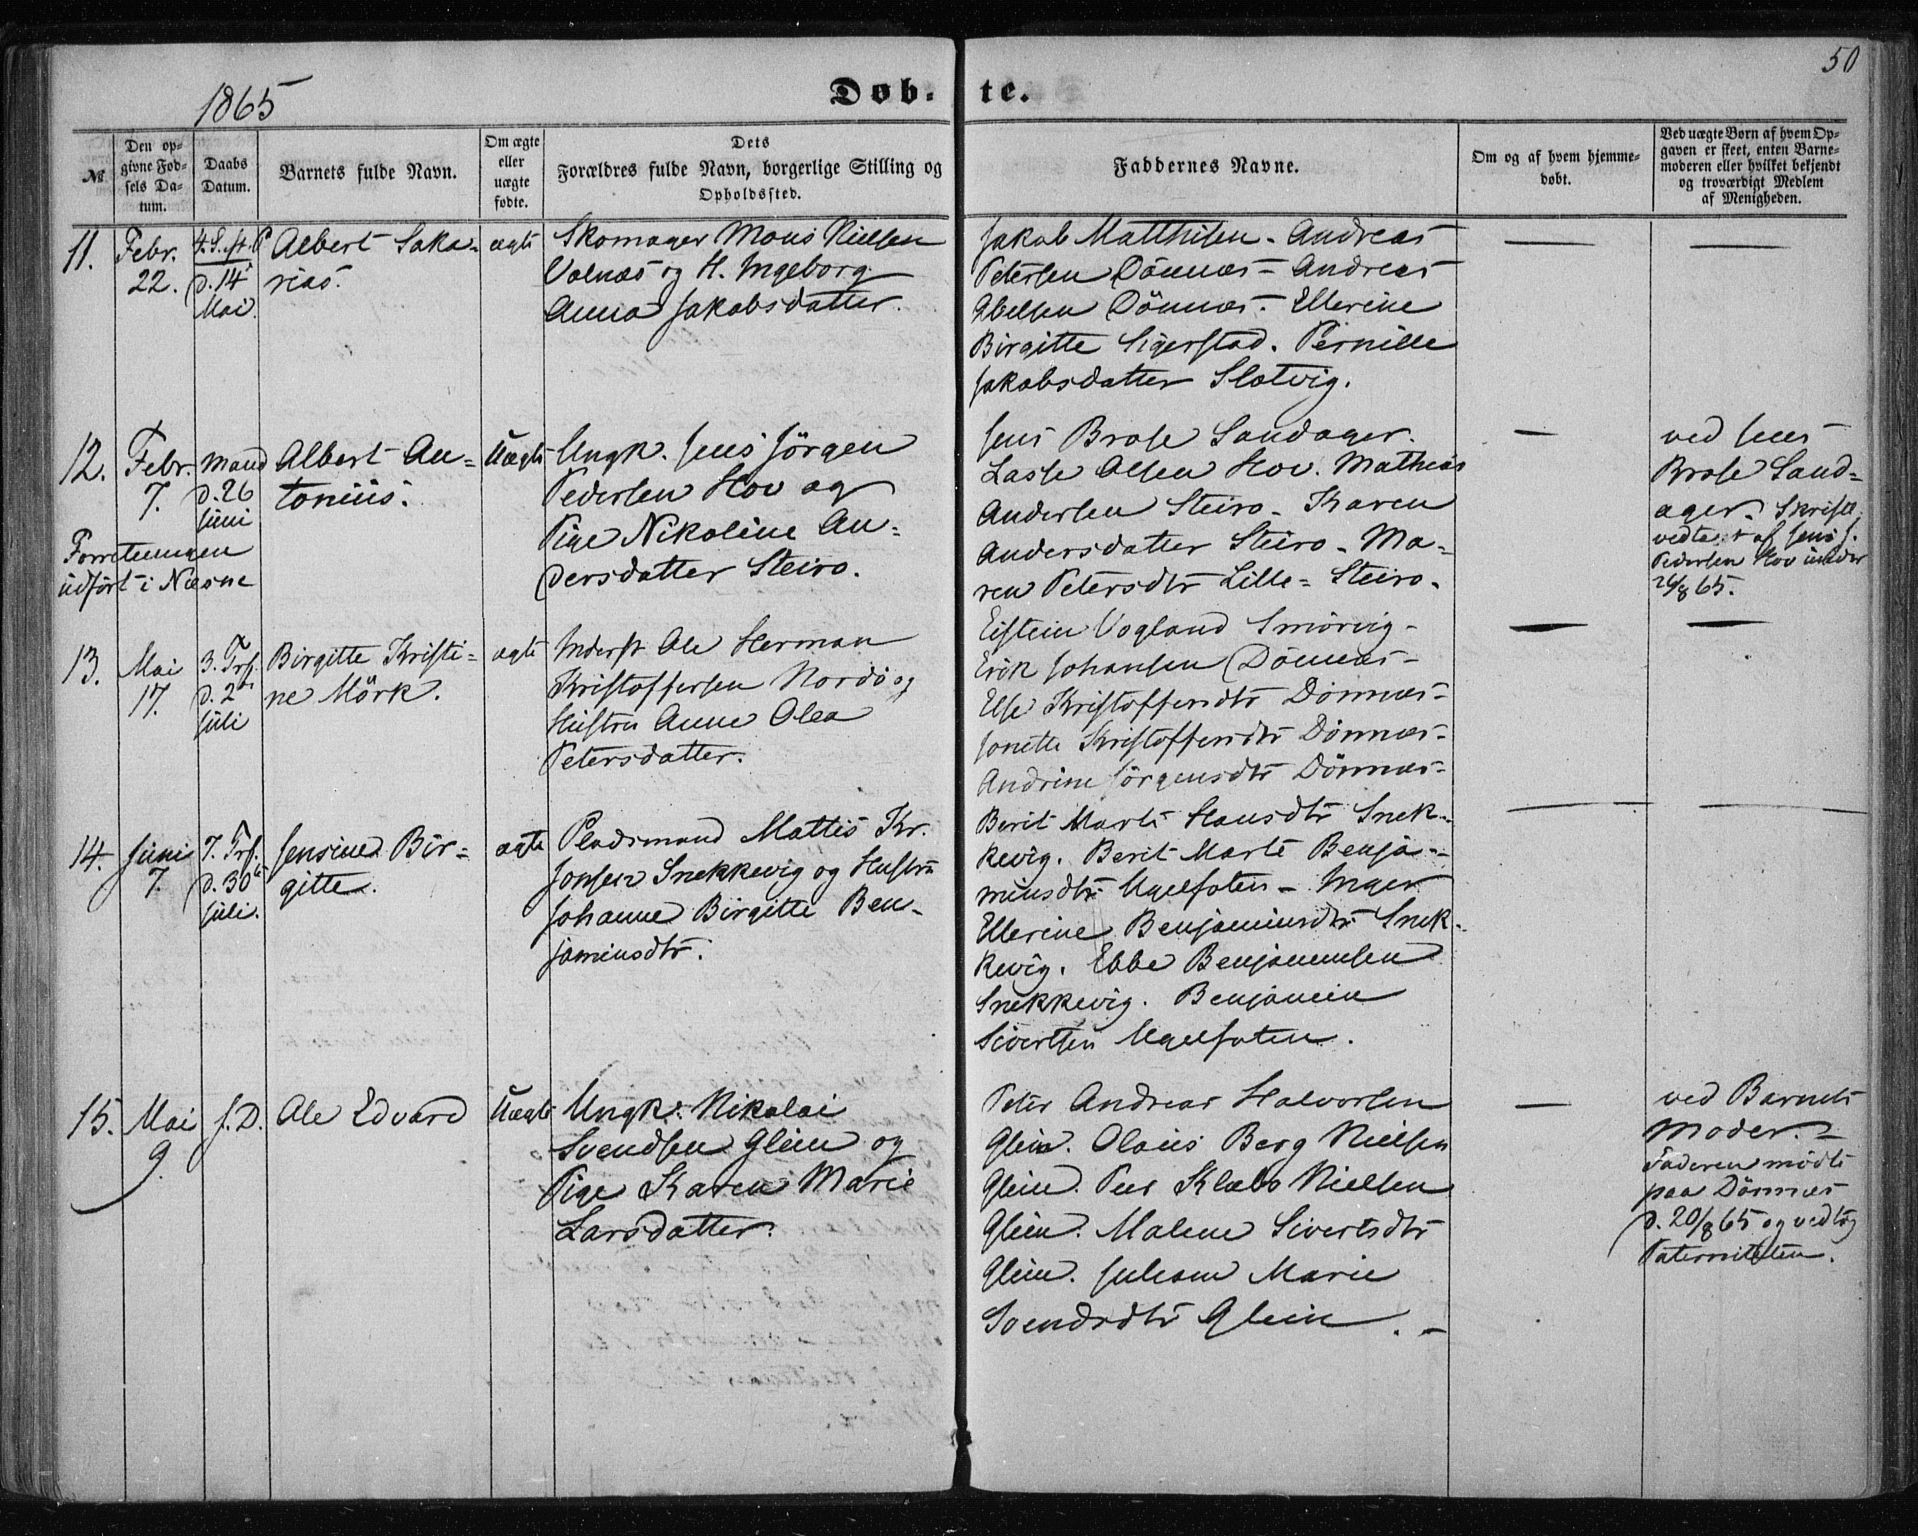 50
1865
Døb- te.
№
Den op-
givne Fød-
sels Da-
tum.
Daabs
Datum.
Barnets fulde Navn.
Om ægte
eller
uægte
fødte.
Dets
Forældres fulde Navn, borgerlige Stilling og
Opholdssted.
Faddernes Navne.
Om og af hvem hjemme-
døbt.
Ved uægte Børn af hvem Op-
gaven er skeet, enten Barne-
moderen eller hvilket bekjendt
og troværdigt Medlem
af Menigheden.
11.
Febr.
22.
4. S. ft. P
d. 14
Mai.
Albert Saka-
rias.
ægte
Skomager Mons Nielsen
Valnæs og H. Ingeborg
Anna Jakobsdatter.
Jakob Matthisen - Andreas
Petersen Dönnæs - Andreas
Abelsen Dönnæs - Ellerine
Birgitte Sigerstad. Pernille
Jakobsdatter Slotvig.
12.
Febr.
7.
Mand
d. 26
Juni
Forretningen
udført i Næsne
Albert An-
tonius.
Uægte
Ungk. Jens Jörgen
Pedersen Hov og
Pige Nikoline An-
dersdatter Steiro.
Jens Brose Sandager.
Lasse Olsen Hov. Mathias
Andersen Steiro - Karen
Andersdatter Steiro - Ma-
ren Petersdtr Lille-Steiro.
ved Jens
Brose Sand-
ager. Skriftl.
vedtaget af Jens J.
Pedersen Hov under
26/8 65.
13.
Mai
17.
3. Trf.
d. 2
Juli
Birgitte Kristi-
ne Mörk.
ægte
Inderst Ole Herman
Kristoffersen Nordö og
Hustru Anne Olea
Petersdatter.
Eistein Vogland Smörvig -
Erik Johansen Dönnæs -
Else Kristoffersdtr Dönnæs -
Jonette Kristoffersdtr Dönnæs -
Andrine Jörgensdtr Dönnæs -
14.
Juni
7.
7. Trf.
d. 30
Juli.
Jensine Bir-
gitte.
ægte
Pladsmand Mattis Kr.
Jonsen Snekkevig og Hustru
Johanne Birgitte Ben-
jaminsdtr.
Berit Marte Hansdtr Snek-
kevig. Berit Marte Benja-
minsdtr Ugelfoten - Inger
Ellerine Benjaminsdtr Snek-
kevig. Ebbe Benjaminsen
Snekkevig. Benjamin
Sivertsen Ugelfoten.
15.
Mai
9.
s. D.
Ole Edvard
Uægte
Ungk. Nikolai
Svendsen Glein og
Pige Karen Marie
Larsdatter.
Peter Andreas Halvorsen
Glein. Olaus Berg Nielsen
Glein. Peer Klæbo Nielsen
Glein. Malene Sivertsdtr
Glein. Marie
Svendsdtr Glein. -
ved Barnets
Moder. -
Faderen mödte
paa Dönnæs
d. 20/8 65 og vedtog
Paterniteten.